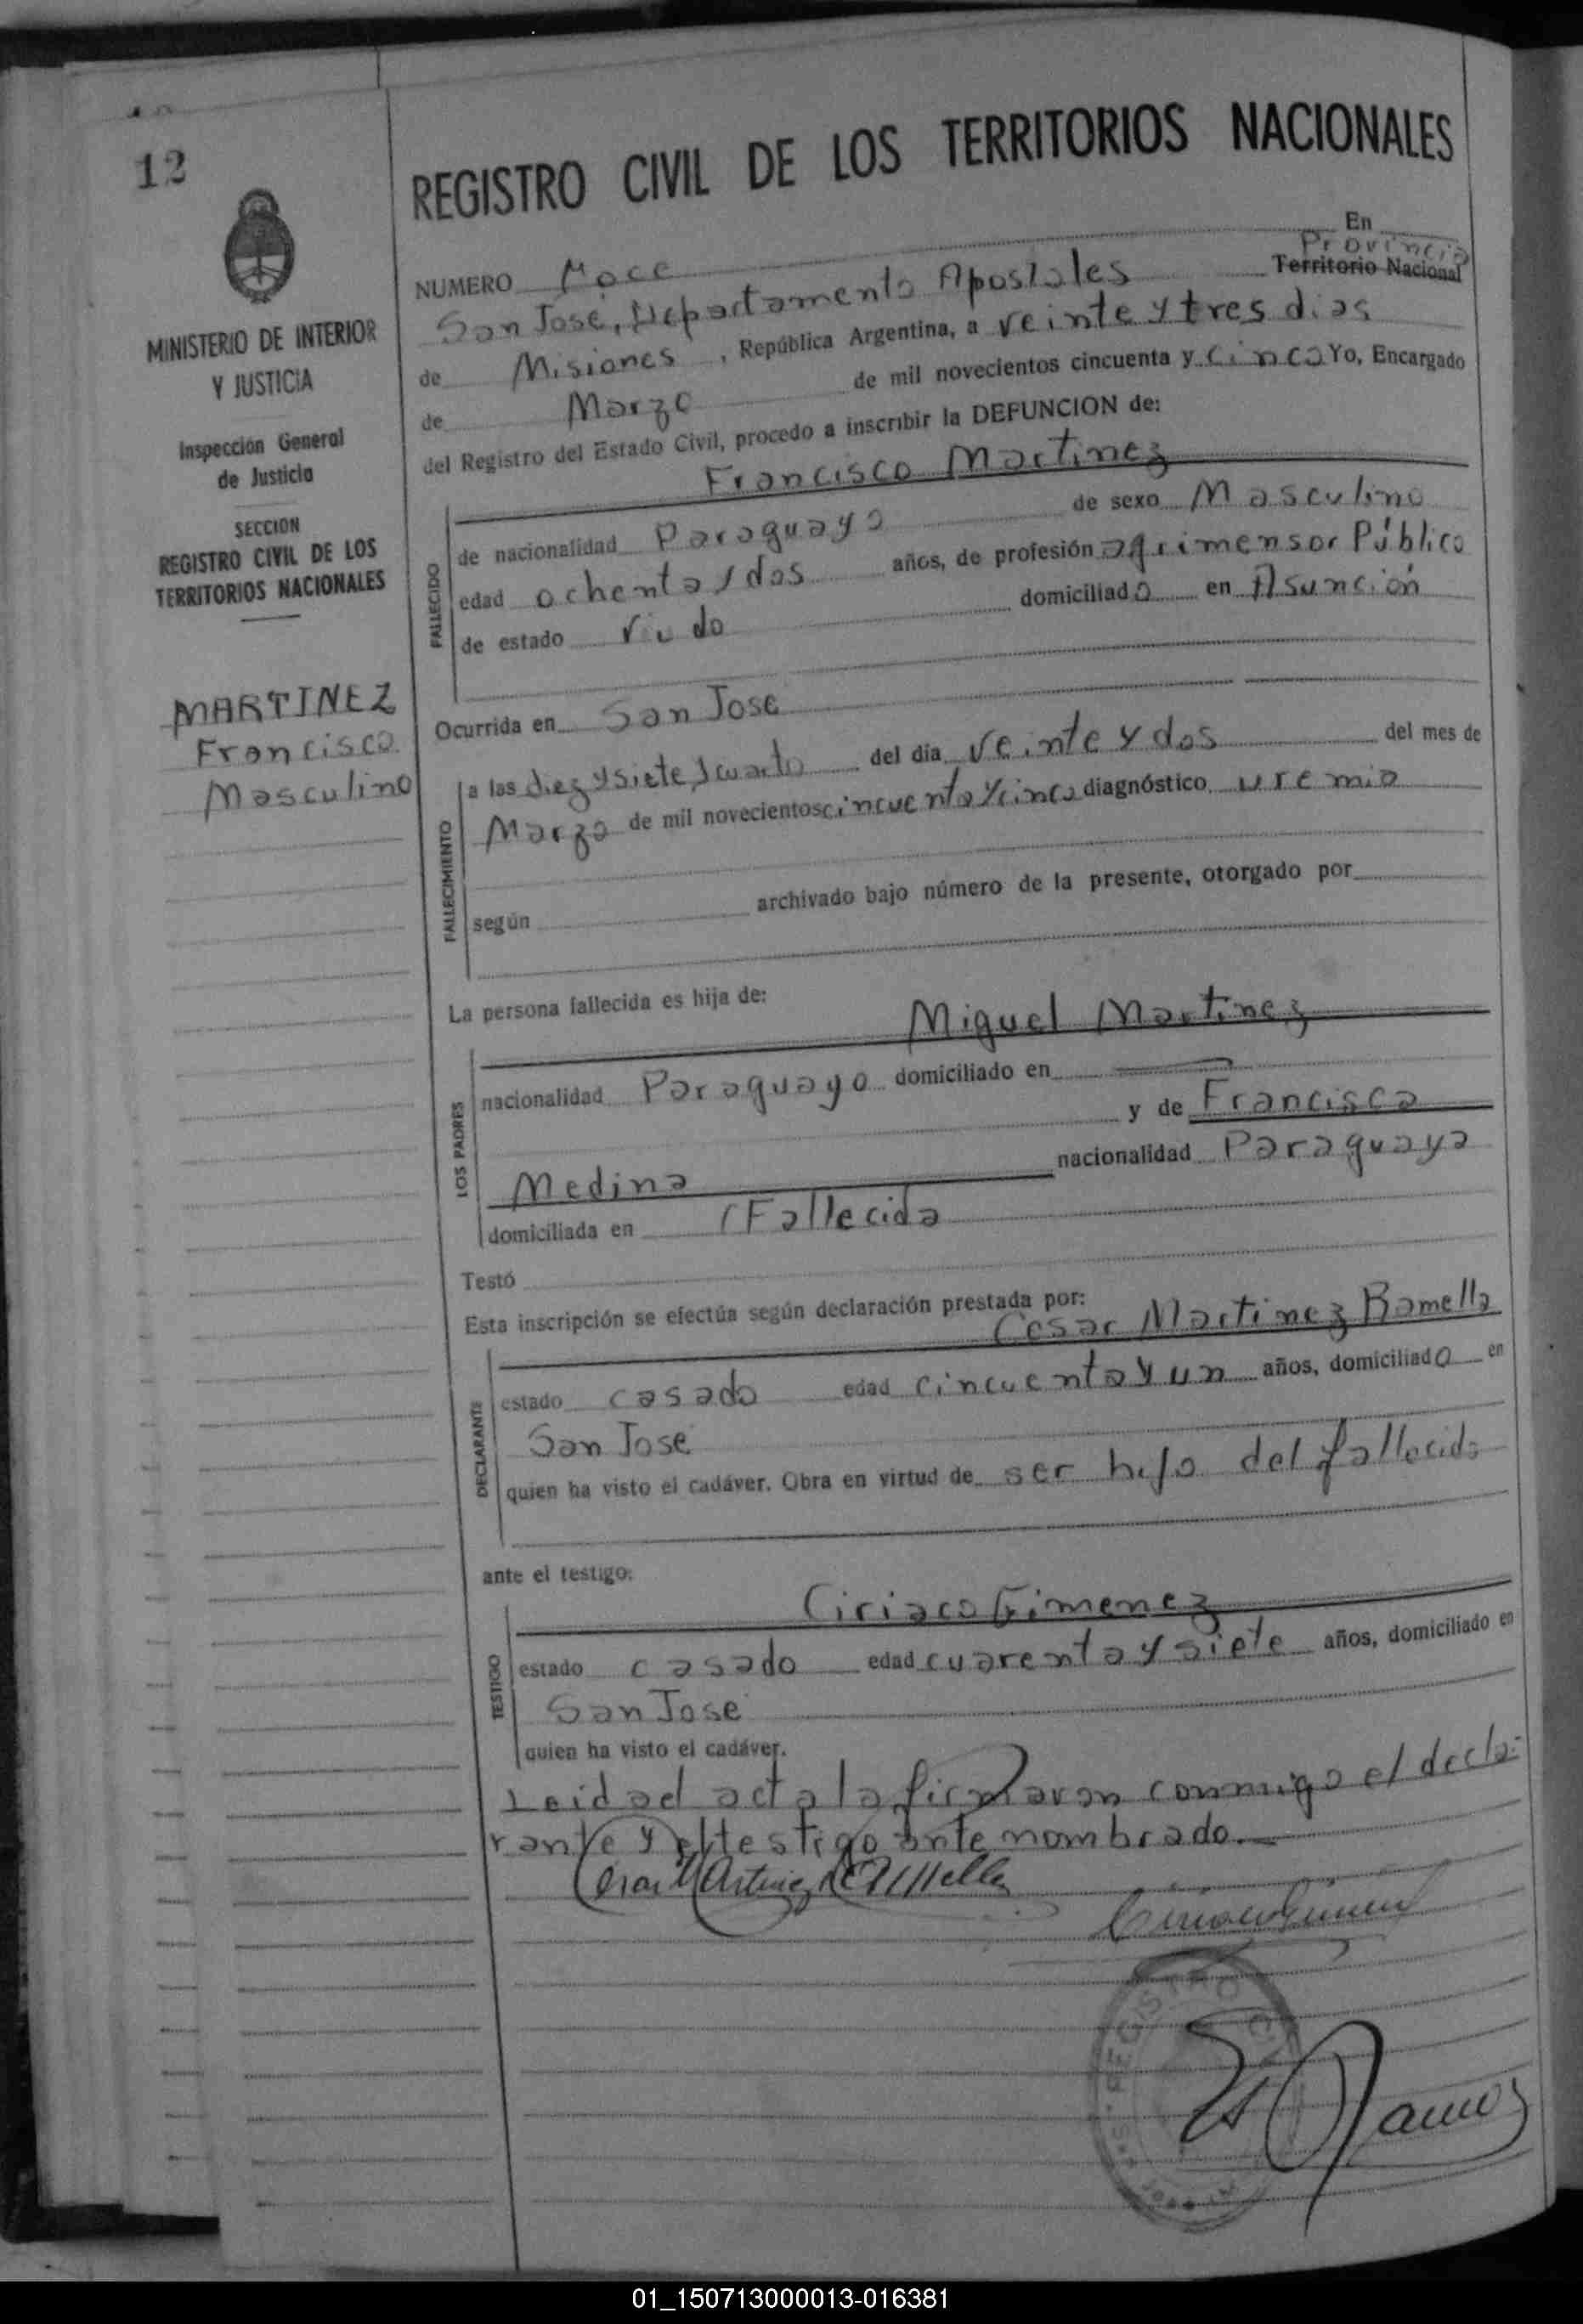 12
MINISTERIO DE INTERIOR
Y JUSTICIA
Inspección General
de Justicia
SECCION
REGISTRO CIVIL DE LOS
TERRITORIOS NACIONALES
MARTINEZ
Francisco
Masculino
REGISTRO CIVIL DE LOS TERRITORIOS NACIONALES
NUMERO Moce En
Provincia
San José, Departamento Apostoles Territorio Nacional
de Misiones, República Argentina, a veinte y tres dias
de Marzo de mil novecientos cincuenta y cinco Yo, Encargado
del Registro del Estado Civil, procedo a inscribir la DEFUNCION de:
Francisco Martinez
FALLECIDO
de nacionalidad Paraguaya de sexo Masculino
edad ochenta y dos años, de profesión agrimensor Público
de estado Viudo domiciliado en Asunción
Ocurrida en San Jose
FALLECIMIENTO
a las diez y siete y cuarto del día veinte y dos del mes de
Marzo de mil novecientos cincuenta y cinco diagnóstico uremia
según archivado bajo número de la presente, otorgado por
La persona fallecida es hija de:
Miguel Martinez
LOS PADRES
nacionalidad Paraguayo domiciliado en
y de Francisca
Medina nacionalidad Paraguaya
domiciliada en (Fallecida
Testó
Esta inscripción se efectúa según declaración prestada por:
Cesar Martinez Ramella
DECLARANTE
estado casado edad cincuenta y un años, domiciliado en
San Jose
quien ha visto el cadáver. Obra en virtud de ser hijo del fallecido
ante el testigo:
Ciriaco Gimenez
TESTIGO
estado casado edad cuarenta y siete años, domiciliado en
San Jose
quien ha visto el cadáver.
Leida el acta la firmaron conmigo el decla-
rante y el testigo ante nombrado.
REGISTRO
01_150713000013-016381